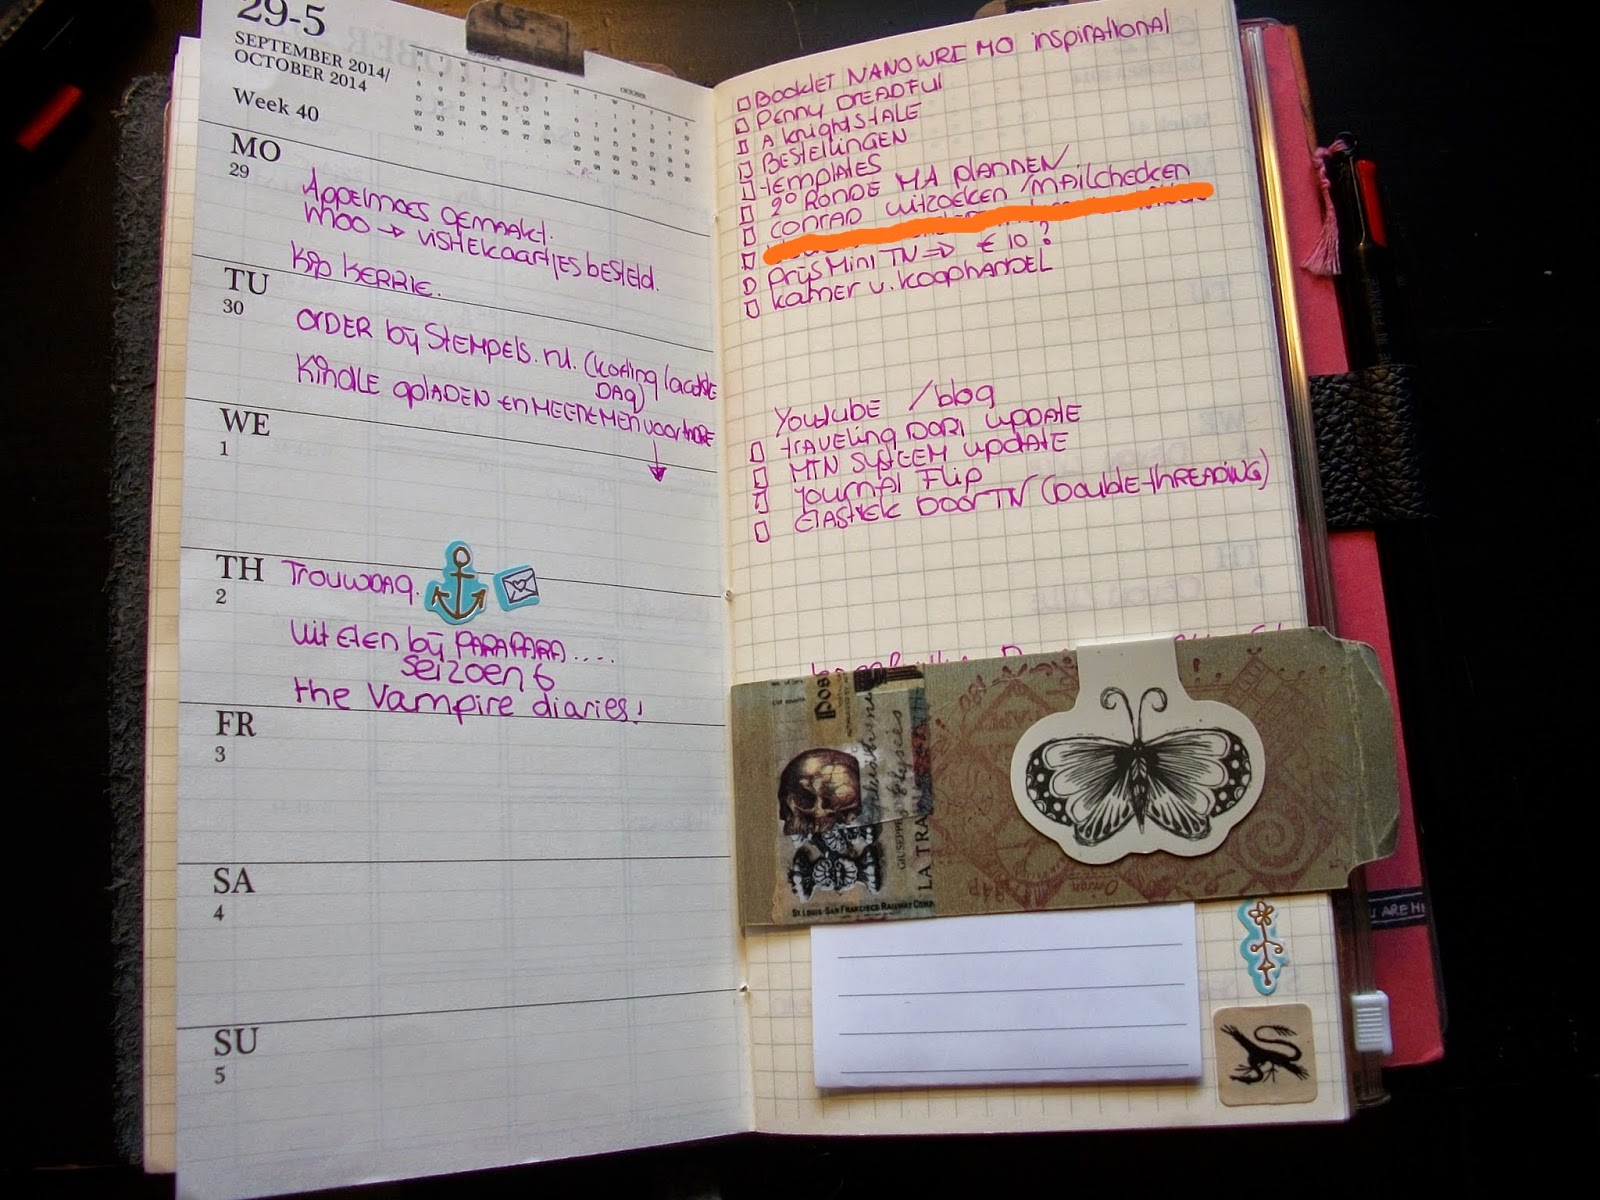 29-5
SEPTEMBER 2014/
OCTOBER 2014
Week 40
OCTOBER
MO
29
Appelmoes gemaakt.
Moo → visitekaartjes besteld.
Kip kerrie.
TU
30
Order bij Stempels.nl. (korting laatste
dag)
Kindle opladen en meenemen voor
WE
1
TH
2
Trouwdag.
Uit eten bij
seizoen 6
the Vampire diaries!
FR
3
SA
4
SU
5
Booklet NANOWRIMO inspirational
Penny Dreadful
A knights tale
Bestellingen
templates
2e Ronde MA plannen
Conrad uitzoeken / mailchecken
prijs Mini TN => € 10?
Kamer v. Koophandel
Youtube / blog
traveling Dori update
MTN System update
Journal Flip
Elastiek door TN (Double-threading)
POS
GIUSEPPE
LA TRA
ST. LOUIS-SAN FRANCISCO RAILWAY COMP